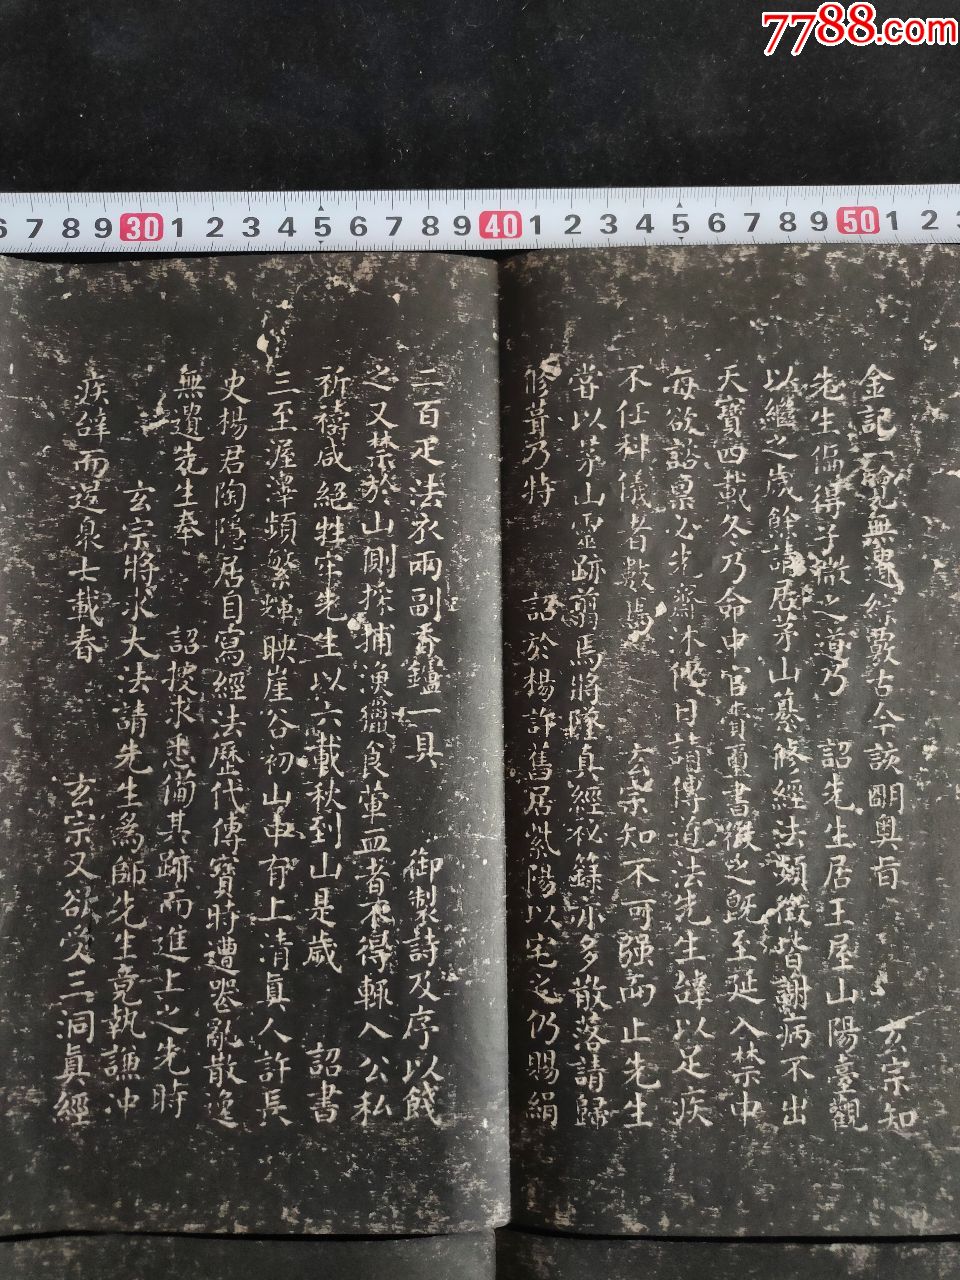 7788.com
6 7 8 9 30 1 2 3 4 5 6 7 8 9 40 1 2 3 4 5 6 7 8 9 50 1 2 3
金記一覽無遺綜覈古今該明奧旨 玄宗知
先生偏得子微之道乃 詔先生居王屋山陽臺觀
以繼之歲餘請居茅山纂修經法頻徵皆謝病不出
天寶四載冬乃命中官賫璽書徵之旣至延入禁中
每欲諮稟必先齋沐他日請傳道法先生辭以足疾
不任科儀者數焉 玄宗知不可强而止先生
嘗以茅山靈跡翦焉將墜真經祕籙亦多散落請歸
修葺乃特 詔於楊許舊居紫陽以宅之仍賜絹
二百疋法衣兩副香鑪一具 御製詩及序以餞
之又禁於山側採捕漁獵食葷血者不得輒入公私
祈禱咸絕牲牢先生以六載秋到山是歲 詔書
三至渥澤頻繁輝映崖谷初山中有上清真人許長
史楊君陶隱居自寫經法歷代傳寶時遭喪亂散逸
無遺先生奉 詔搜求悉備其跡而進上之先時
玄宗將求大法請先生爲師先生竟執謙沖
疾辭而還泉七載春 玄宗又欲受三洞眞經